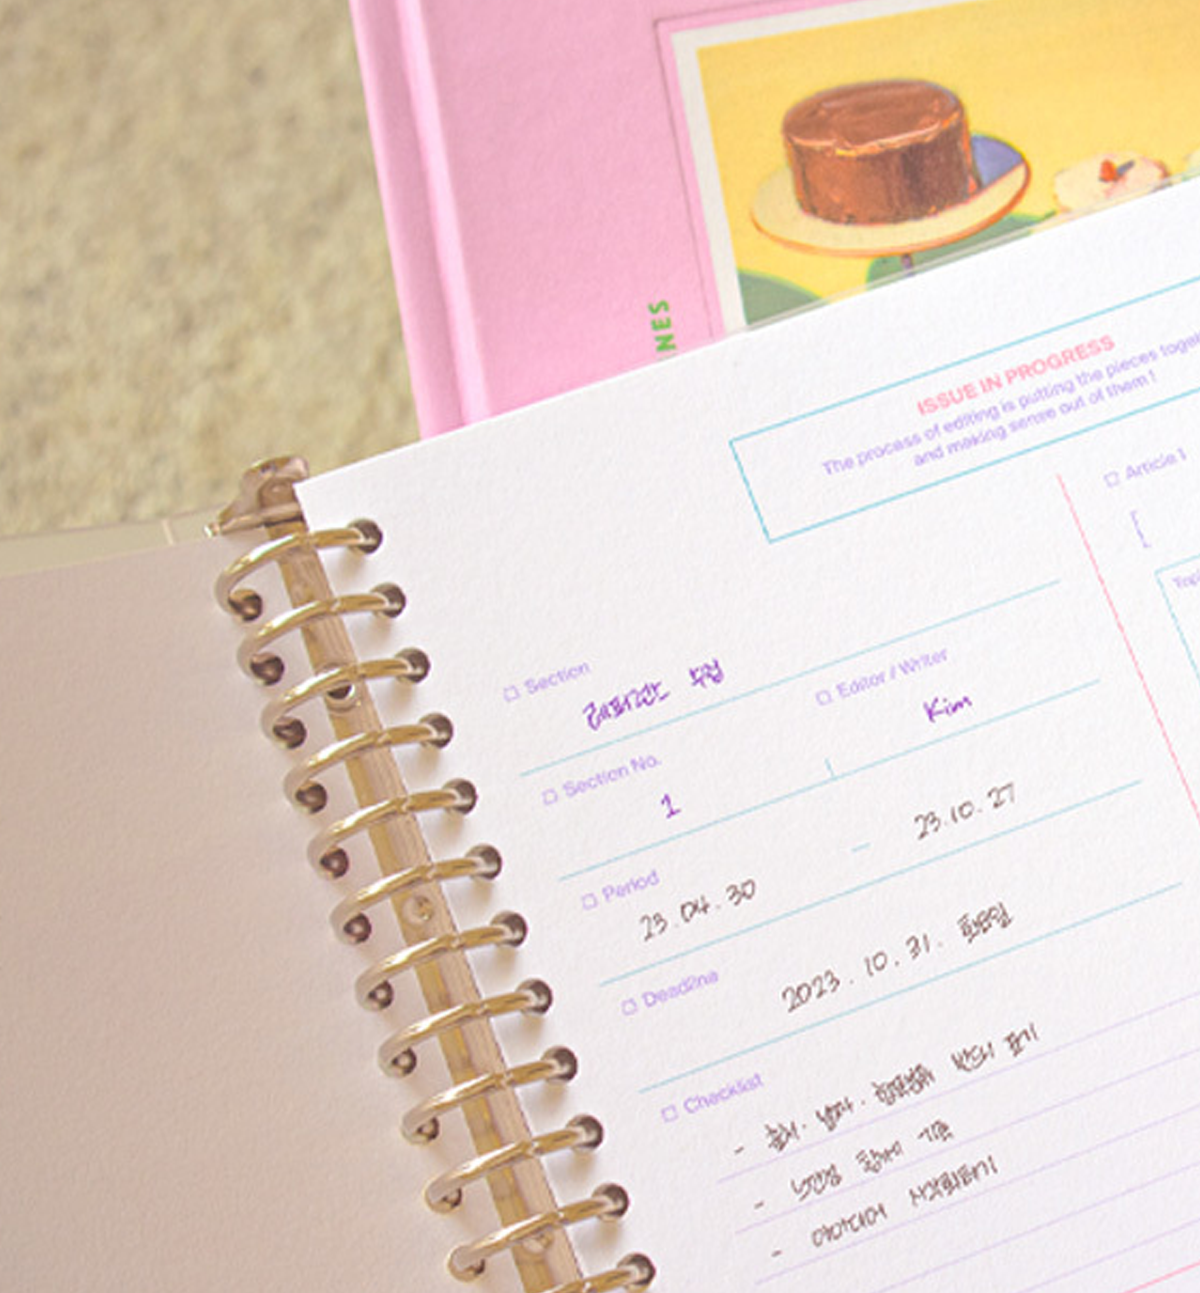 NES
ISSUE IN PROGRESS
The process of editing is putting the pieces
and making sense out of them!
Article 1
Section
레퍼런스 수집
Editor / Writer
Kim
Section No.
1
Period
23.04.30 – 23.10.27
Deadline
2023.10.31. 화요일
Checklist
- 출처. 날짜. 반드시 표기
- 기준
- 아이디어 시각화하기